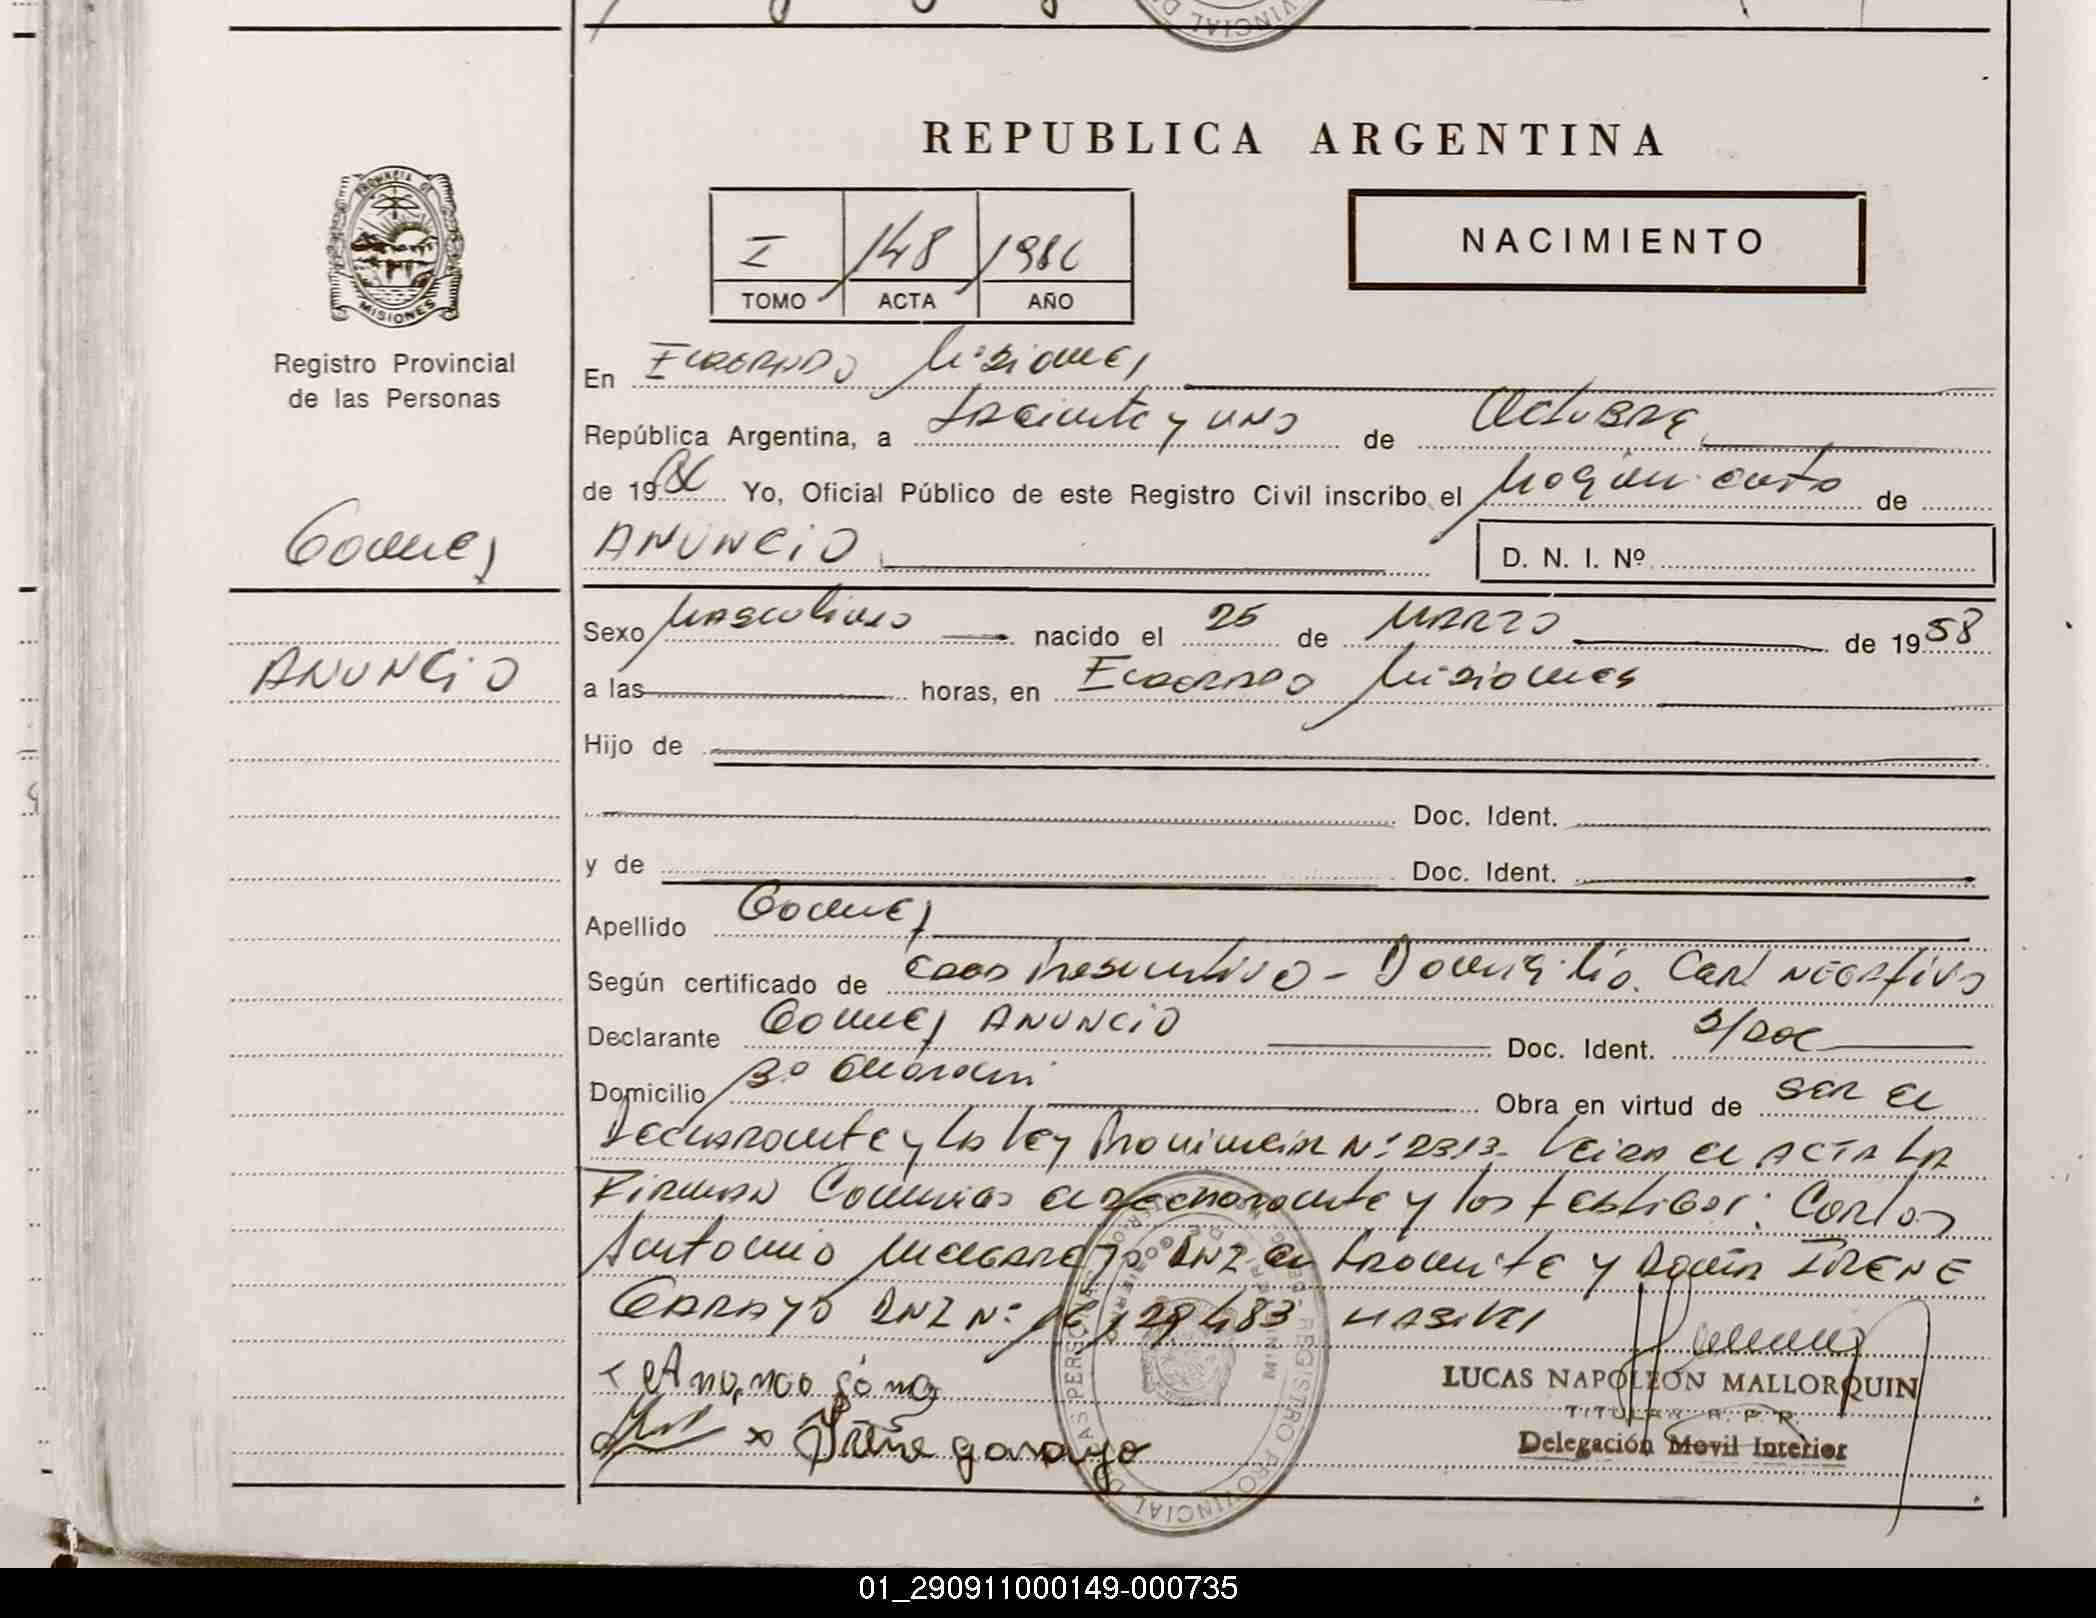 REPUBLICA ARGENTINA
PROVINCIA DE
MISIONES
Registro Provincial
de las Personas
I 148 1986
TOMO ACTA AÑO
NACIMIENTO
En Eldorado Misiones
República Argentina, a treinta y uno de Octubre
de 1986 Yo, Oficial Público de este Registro Civil inscribo el Nacimiento de
Gomez
ANUNCIO
D. N. I. Nº
Sexo Masculino nacido el 25 de Marzo de 1958
ANUNCIO
a las horas, en Eldorado Misiones
Hijo de
Doc. Ident.
y de Doc. Ident.
Apellido Gomez
Según certificado de Edad Presuntiva - Domicilio. Cert Negativo
Declarante Gomez ANUNCIO Doc. Ident. S/Doc
Domicilio Bº Guarani Obra en virtud de ser el
Declarante y la ley Provincial Nº 2313. Leida el ACTA LA
Firman Conmigo el Declarante y los testigos: Carlos
Antonio DNI en tramite y Doña IRENE
GARAYO DNI Nº HABILES
Irene garayo
LUCAS NAPOLEON MALLORQUIN
TITULAR R. P. P.
Delegación Movil Interior
01_290911000149-000735